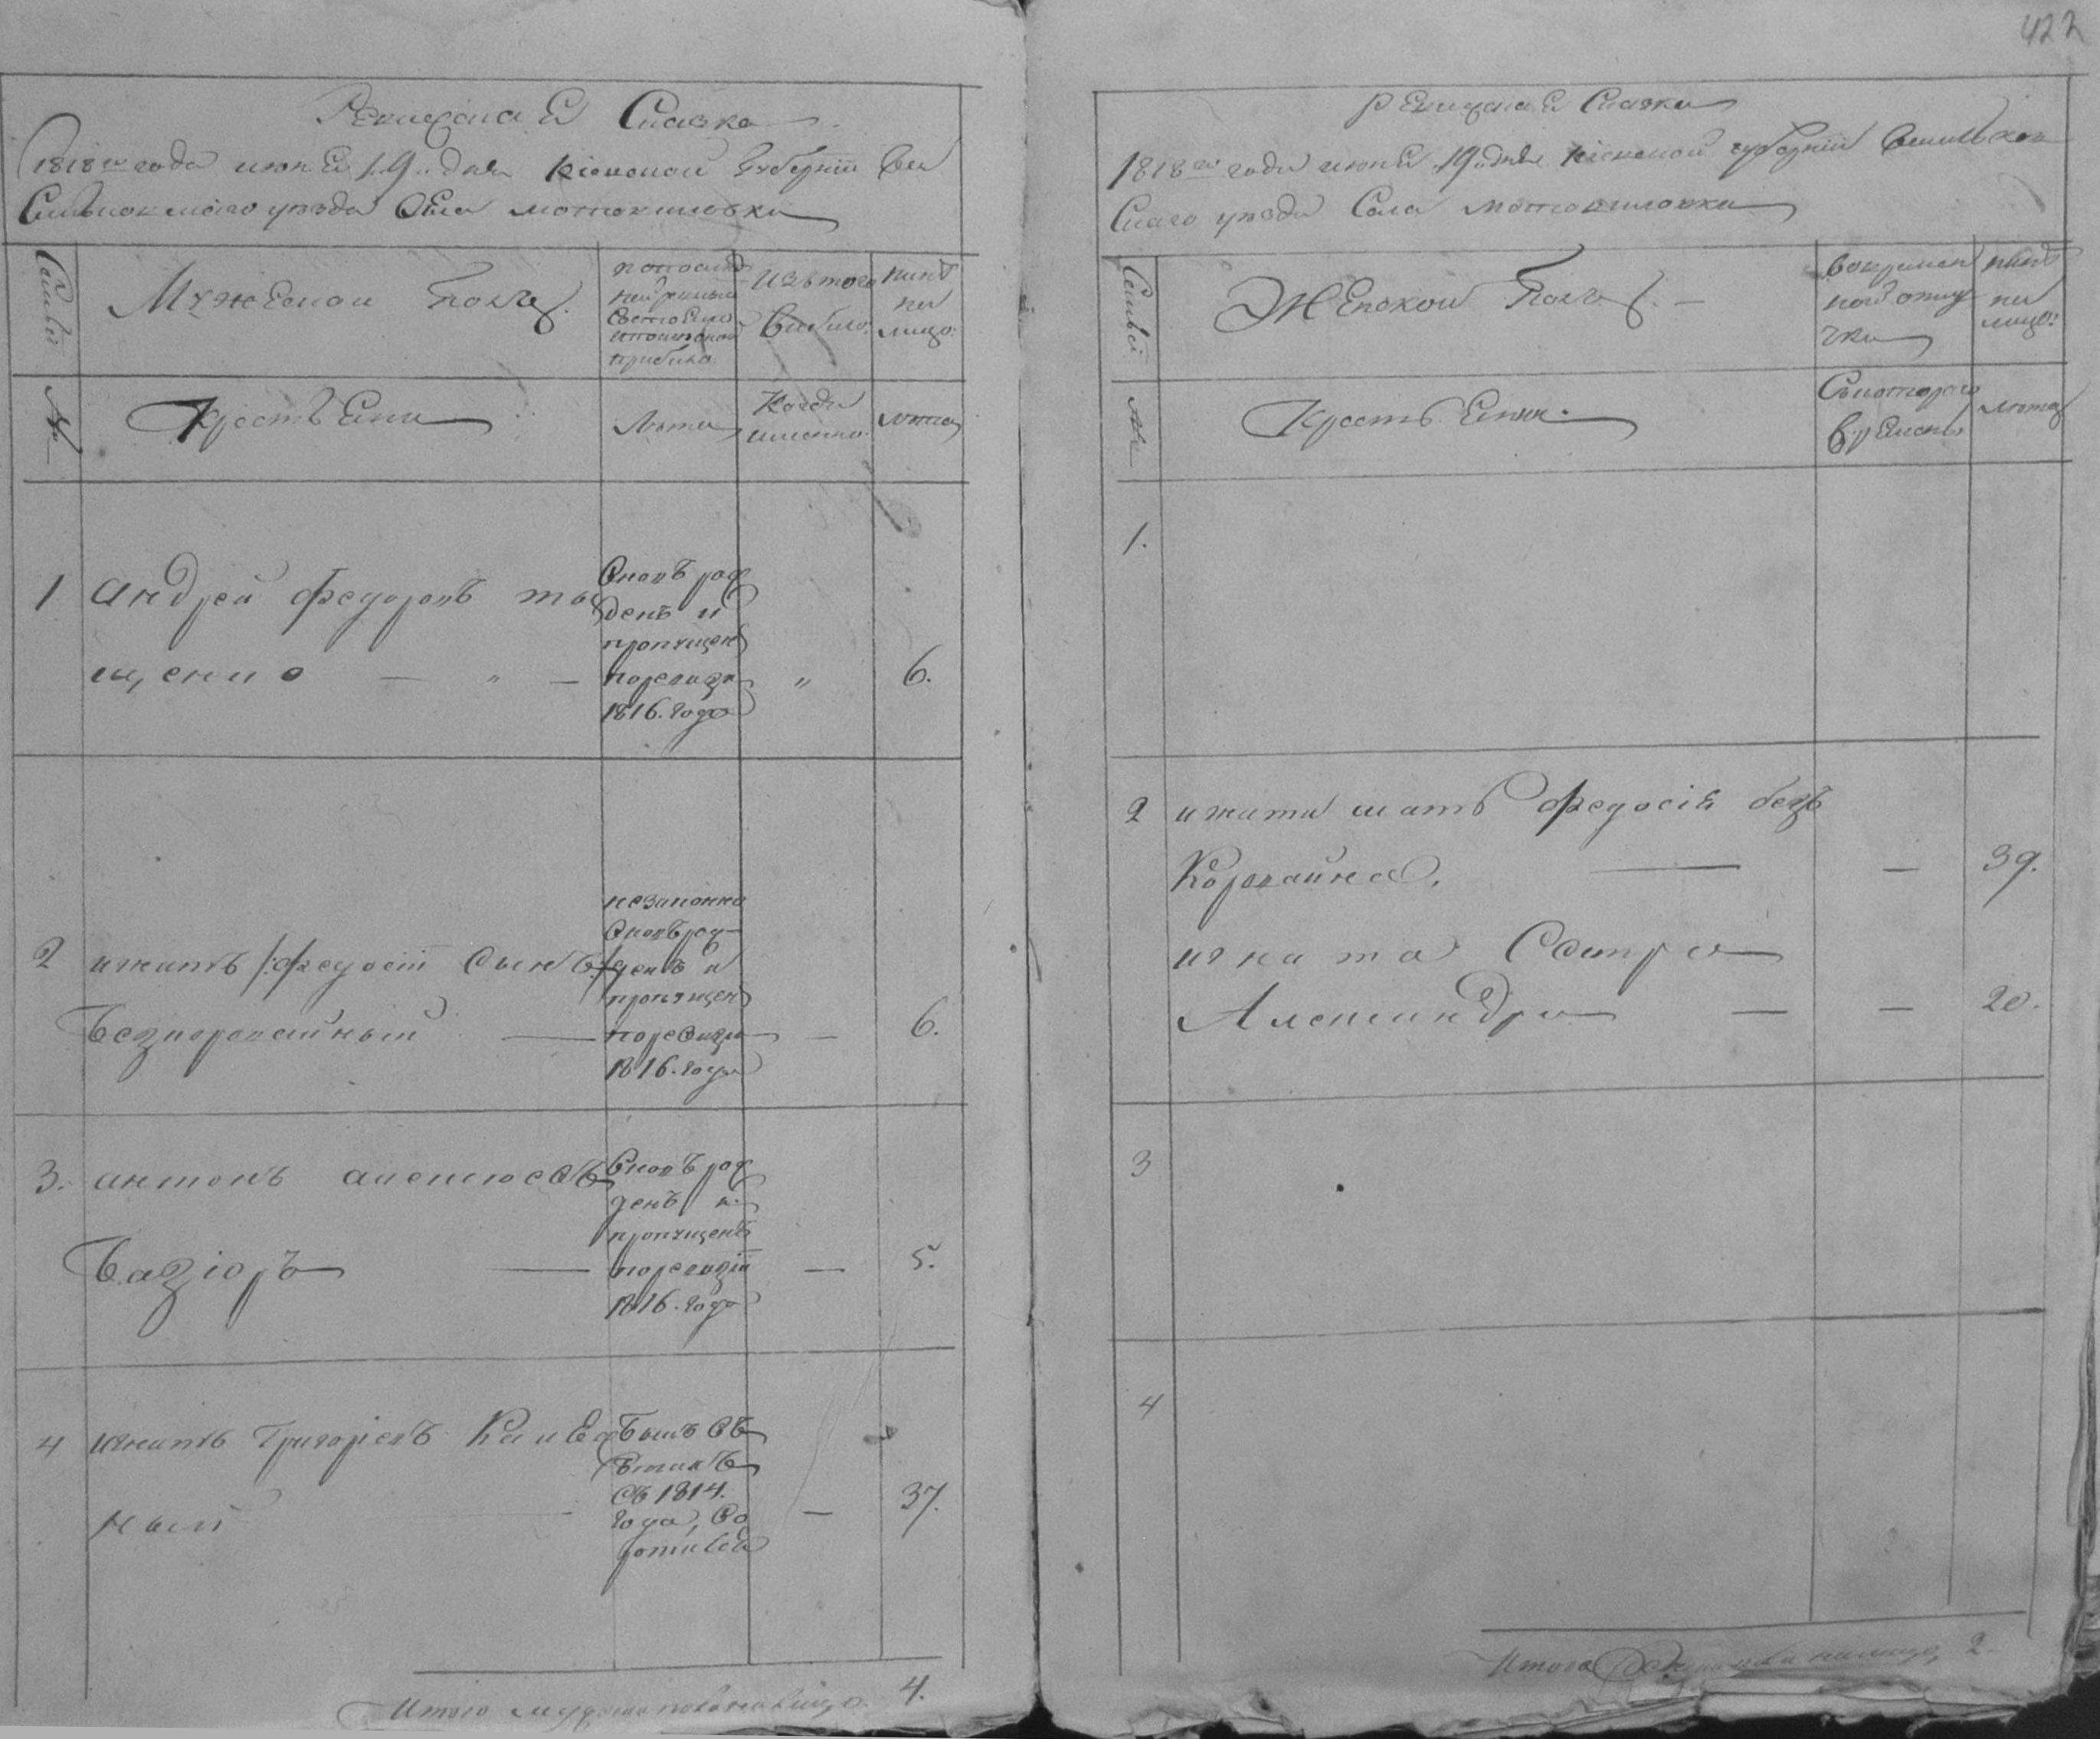 422
Ревизская Сказка
1818го года июня 19 дня Кіевской Губерніи Ва
сильковскаго уезда Села Мотовиловки
Семьи
Мужеской полъ
по последней ревизіи состояло и после оной прибыло
Изъ того выбыло
ныне на лицо
№
Крестьяне
Лета
Когда именно
Лета
1 Андрей Федоровъ ты
щенко — " —
Вновь рож
денъ и
пропущенъ
по ревизи
1816. года
"
6.
2 игнатъ /:федосіи сынъ:/
Безкоровайный —
незаконно
Вновь рож
денъ и
пропущенъ
по ревизи
1816. года
—
6.
3. антонъ алексіевъ
Базіоръ —
Вновь рож
денъ и
пропущенъ
по ревизіи
1816. года
—
5.
4 игнатъ Григоріевъ Каме
ный
Былъ въ
съ 1814.
года,
—
37.
Итого мужеска пола на лицо. 4.
Ревизская Сказка
1818го года июня 19 дня Кіевской губерніи Васильков
скаго уезда Села Мотовиловки
Семьи
Женской полъ
во временной отлучки
ныне на лицо:
№
Крестьяне
Съ котораго времени
лета
1.
2 игната мать федосія без
Коровайна. — — 39.
игната Сестра
Александра — — 20.
3
4
Итого женска на лицо, 2